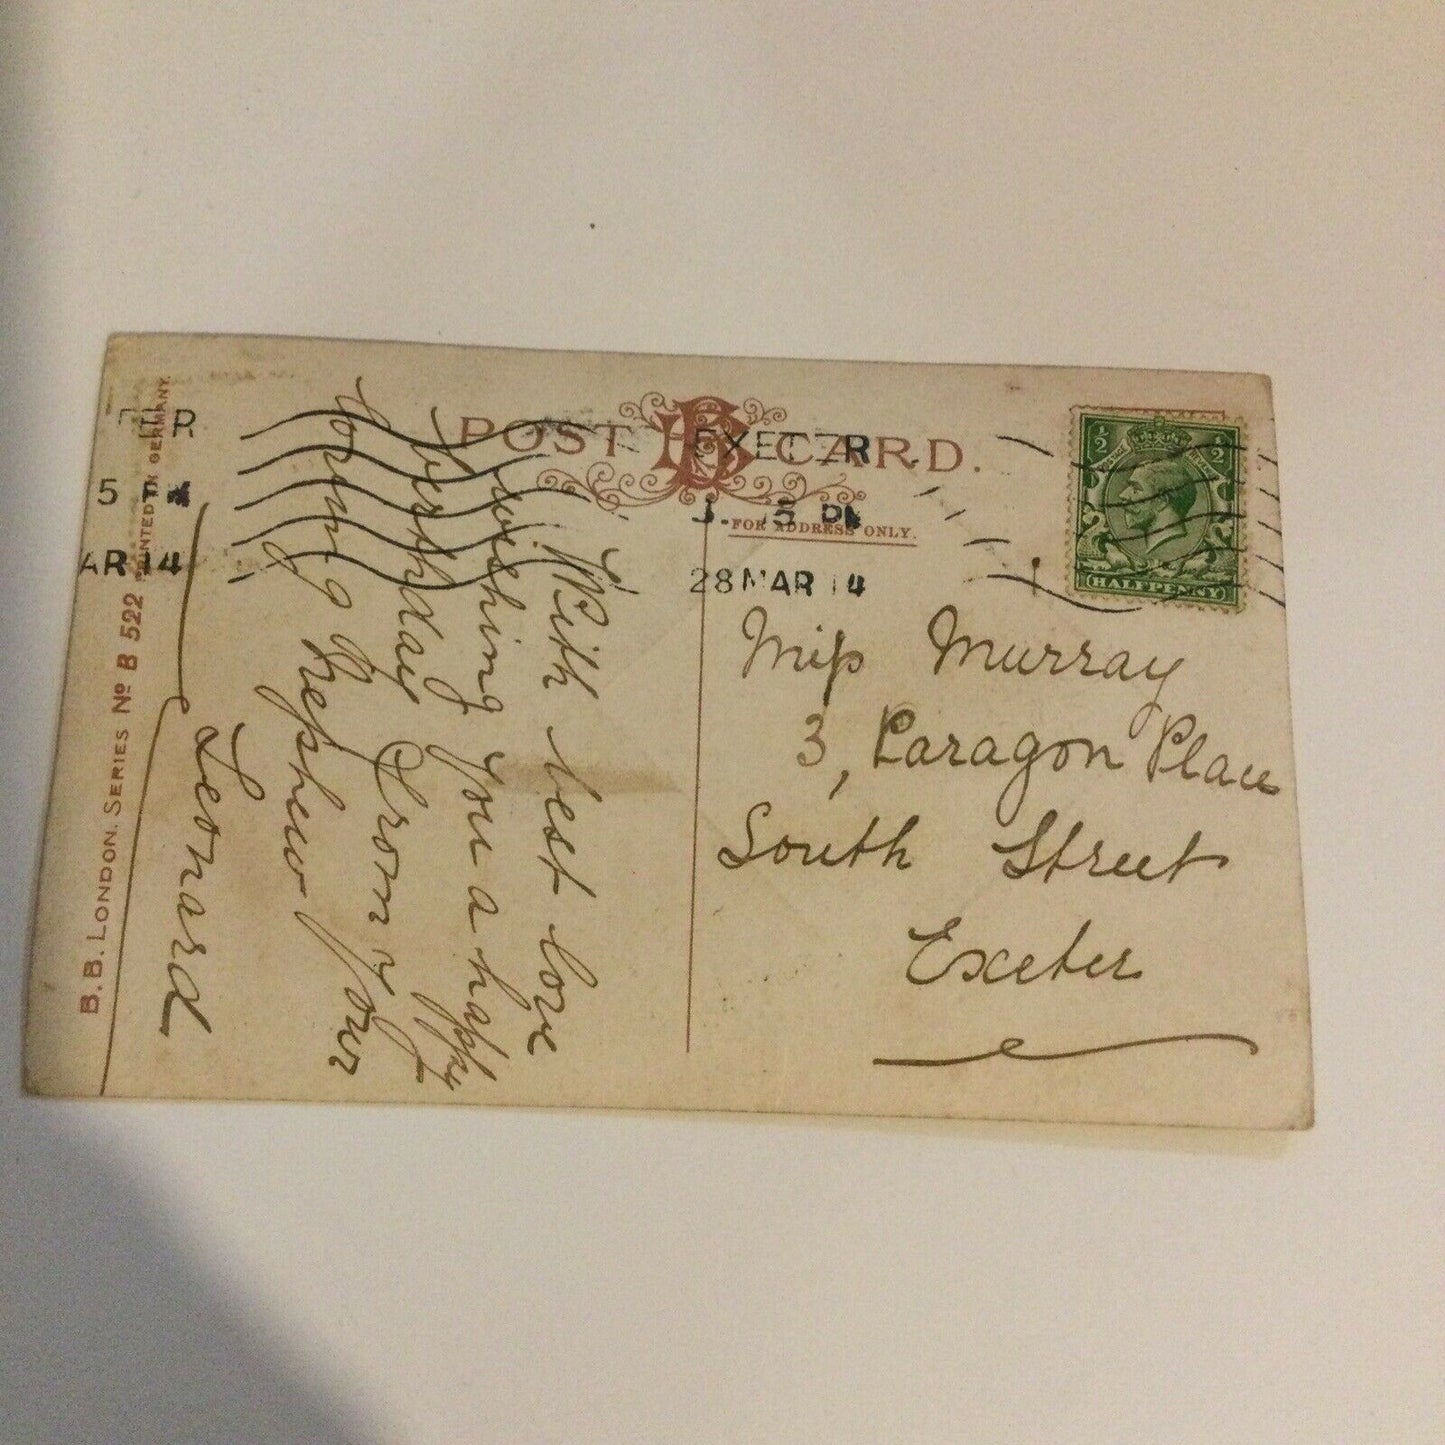 POST CARD.
FOR ADDRESS ONLY.
EXETER
28 MAR 14
TER
5
AR 14
½ ½
HALFPENNY
B.B. LONDON. SERIES Nº B 522 PRINTED IN GERMANY.
With best love
wishing you a happy
birthday From your
loving Nephew
Leonard
Miss Murray
3, Paragon Place
South Street
Exeter